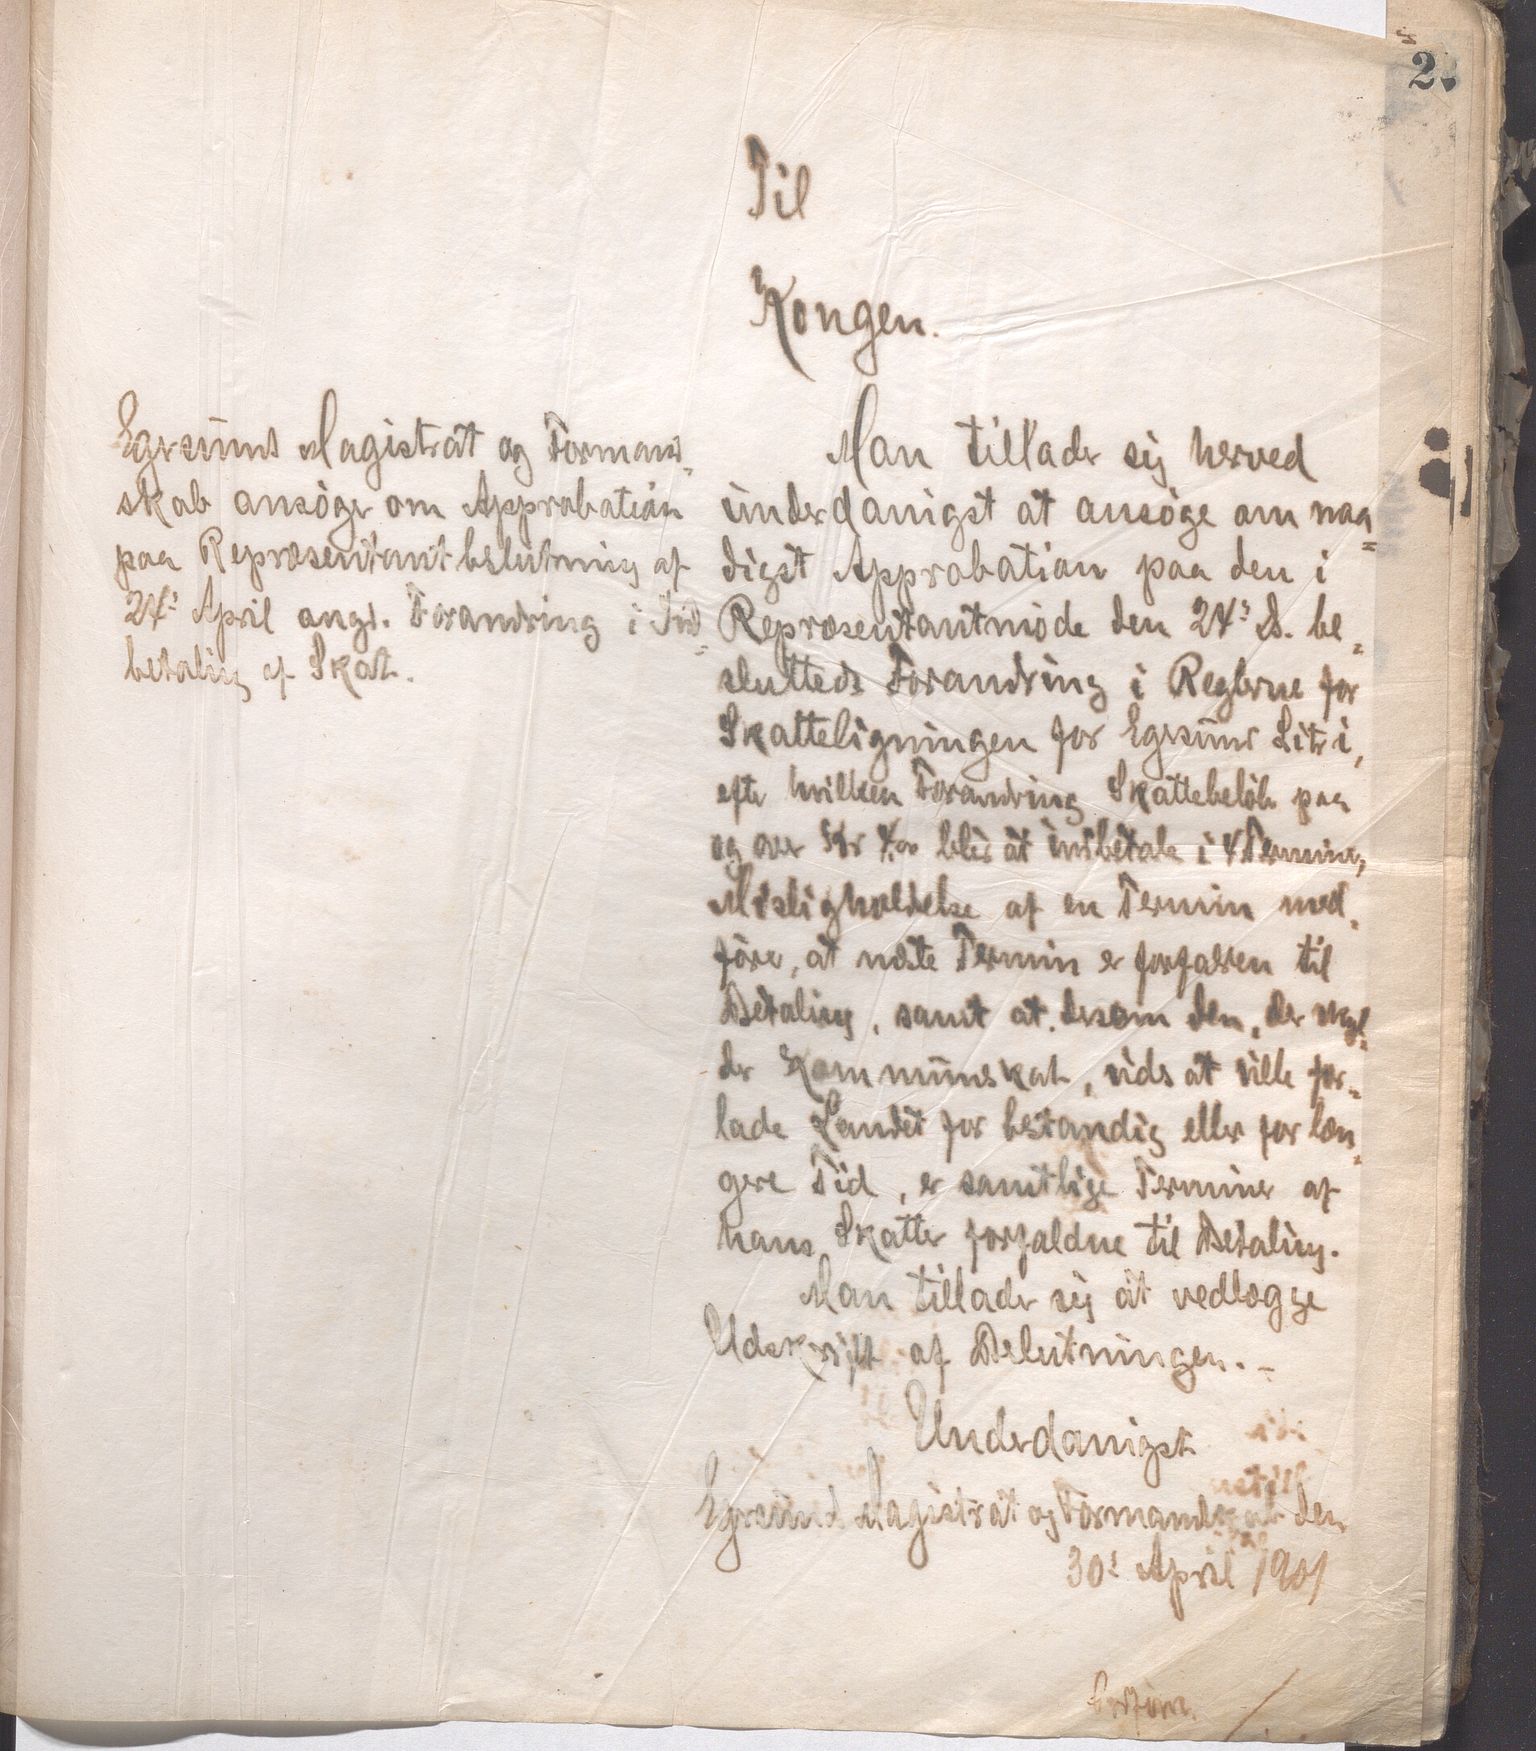 2
Til
Kongen.
Egersunds Magistrat og Formand-
skab ansøger om Approbation
paa Repræsentantbeslutning af
24' April angd. Forandring i Ind-
betaling af Skat.
Man tillader sig herved
underdanigst at ansøge om naa-
digst Approbation paa den i
Repræsentantmøde den 24' ds. be-
sluttede Forandring i Reglerne for
Skatteligningen for Egersunds
efter hvilken Forandring Skattebeløb paa
og over Kr blir at indbetale i 4 Terminer,
Misligholdelse af en Termin med-
fører, at næste Termin er forfalden til
Betaling, samt at dersom den, der skyl-
der Kommuneskat, vides at ville for-
lade Landet for bestandig eller for læn-
gere Tid, er samtlige Terminer af
hans Skatter forfaldne til Betaling.
Man tillader sig at vedlægge
Udskrift af Beslutningen. -
Underdanigst
Egersunds Magistrat og Formandskab den
30' April 1901